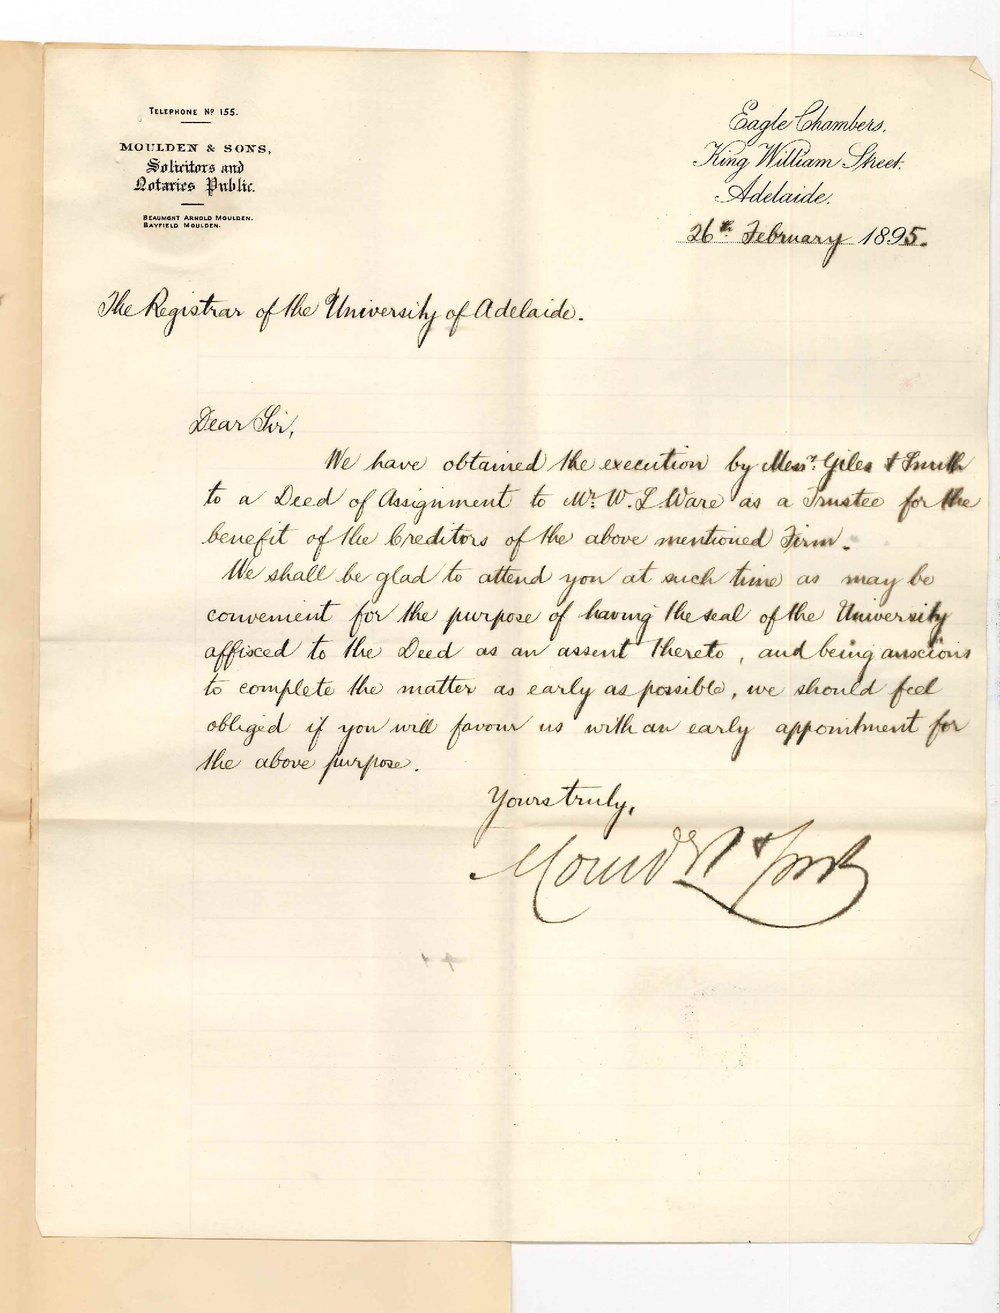 TELEPHONE Nº 155.
MOULDEN & SONS,
Solicitors and
Notaries Public.
BEAUMONT ARNOLD MOULDEN.
BAYFIELD MOULDEN.
Eagle Chambers,
King William Street.
Adelaide.
26th February 1895.
The Registrar of the University of Adelaide.
Dear Sir,
We have obtained the execution by Messrs. Giles & Smith
to a Deed of Assignment to Mr. W. L. Ware as a Trustee for the
benefit of the Creditors of the above mentioned Firm.
We shall be glad to attend you at such time as may be
convenient for the purpose of having the seal of the University
affixed to the Deed as an assent thereto, and being anxious
to complete the matter as early as possible, we should feel
obliged if you will favour us with an early appointment for
the above purpose.
Yours truly,
Moulden & Sons